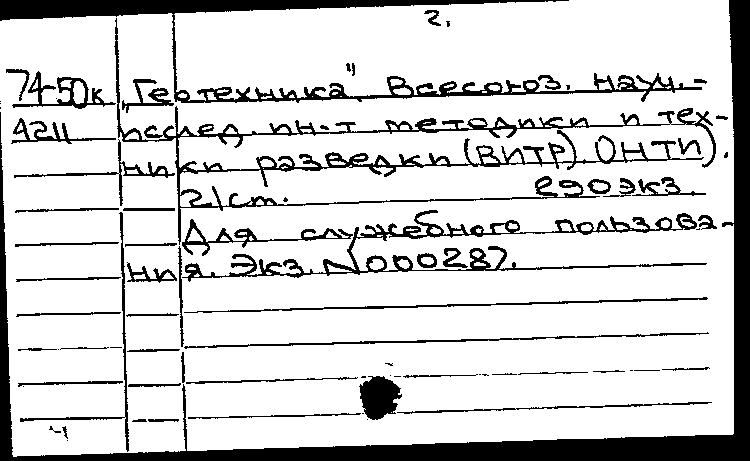 2.
74-50к „Геотехника". Всесоюз. науч.-
4211 исслед. ин-т методики и тех-
ники разведки (ВИТР). ОНТИ).
21см. 290экз.
Для служебного пользова-
ния. Экз. N000287.